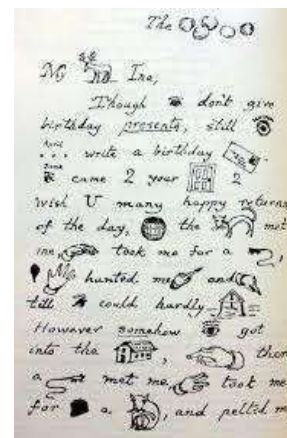 The
My Ina,
Though don't give
birthday presents, still
April
... write a birthday
June
came 2 your 2
wish U many happy returns
of the day, the met
me, took me for a ,
hunted me and
till could hardly
However somehow got
into the ,
a met me, took me
for a , and pelted m